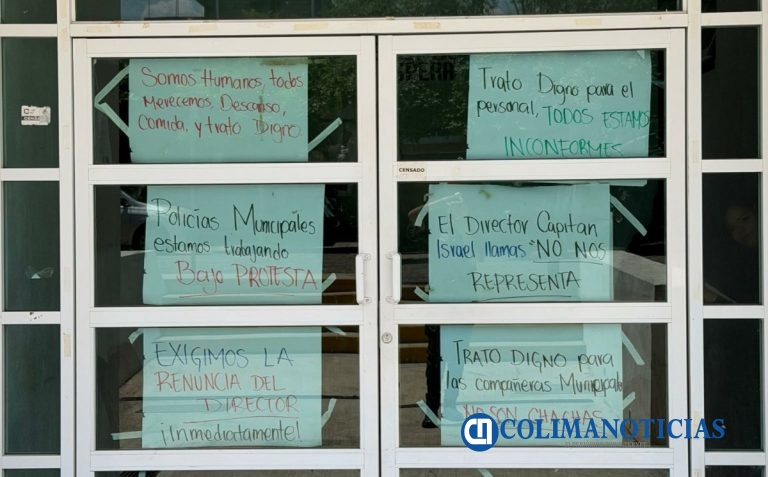 Somos Humanos, todos
Merecemos, Descanso,
Comida, y trato Digno
Trato Digno para el
personal, TODOS ESTAMOS
INCONFORMES
CENSADO
Policías Municipales
estamos trabajando
Bajo PROTESTA
El Director Capitan
Israel llamas "NO NOS
REPRESENTA
EXIGIMOS LA
RENUNCIA DEL
DIRECTOR
¡Inmediatamente!
TRATO DIGNO para
las compañeras Municipales
NO SON CHACHAS
COLIMANOTICIAS